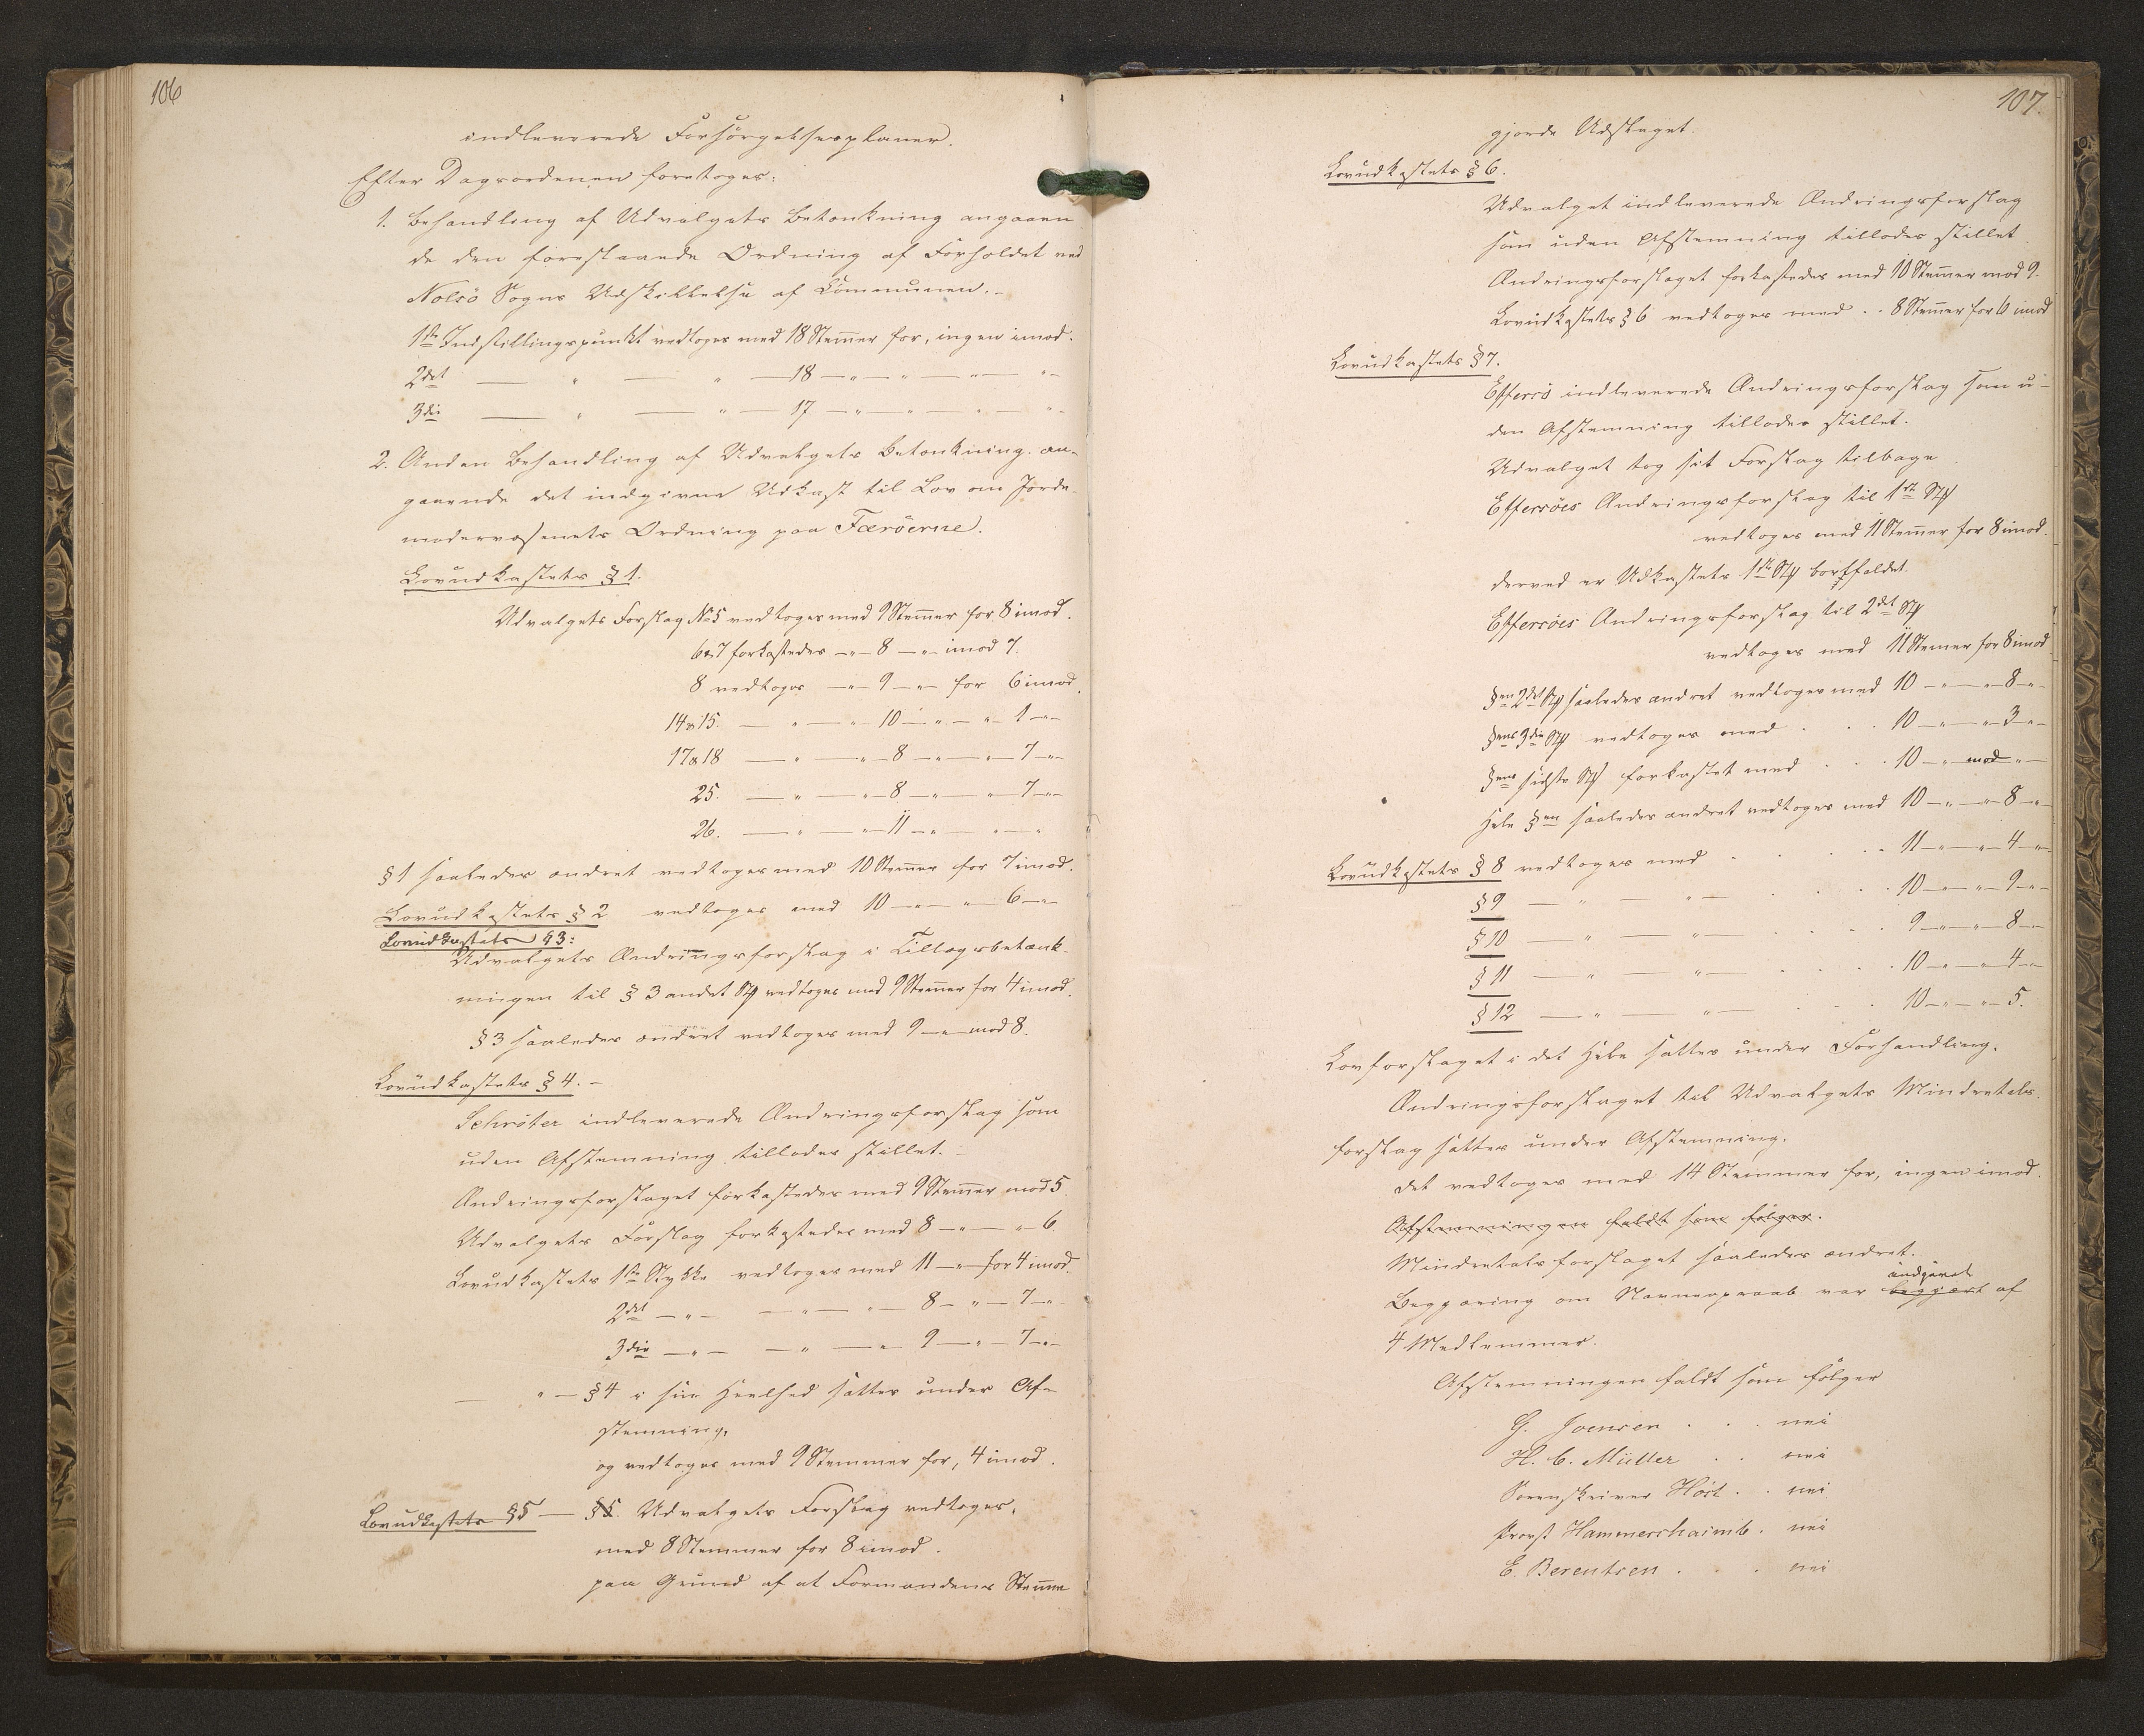 106
indleverede Forsørgelsesplaner.
Efter Dagsordenen foretoges:
1. Behandling af Udvalgets Betænkning angaaen
de den forestaaende Ordning af Forholdet ved
Nolsö Sogns Udskillelse af Communen.-
1ste Indstillingspunkt vedtoges med 18 Stemer for, ingen imod.
2det — " — " — 18 — " — " — " — "-
3die — " — " — 17 — " — " — " — "-
2. Anden Behandling af Udvalgets Betænkning an-
gaaende det indgivne Udkast til Lov om Jorde-
modervæsenets Ordning paa Færöerne.
Lovudkastets § 1.
Udvalgets Forslag No 5 vedtoges med 9 Stemer for 8 imod.
6 & 7 forkastedes —"— 8 —"— imod 7.
8 vedtoges —"— 9 —"— for 6 imod.
14 & 15. — " — " — 10 — " — " — 1 —"—
17 & 18 — " — " — 8 — " — " — 7 —"—
25. — " — " — 8 — " — " — 7 —"—
26. — " — " — 11 — " — " — "
§ 1 saaledes ændret vedtoges med 10 Stemer for 7 imod.
Lovudkastets § 2 vedtoges med 10 —"— " — 6 —"—
Lovudkastets § 3:
Udvalgets Ændringsforslag i Tillægsbetænk-
ningen til § 3 andet Stk vedtoges med 9 Stemer for 4 imod.
§ 3 saaledes ændret vedtoges med 9 —"— mod 8.
Lovudkastets § 4. -
Schröter indleverede Ændringsforslag som
uden Afstemning tillodes stillet. -
Ændringsforslaget forkastedes med 9 Stemer mod 5.
Udvalgets Forslag forkastedes med 8 —"— " — 6.
Lovudkastets 1ste Stykke vedtoges med 11 —"— for 4 imod.
2det — " — — " — " — 8 — " — 7 —"-
3die — " — — " — " — 9 — " — 7 —"-
— " — § 4 i sin Heelhed sattes under Af-
stemning,
og vedtoges med 9 Stemmer for, 4 imod.
Lovudkastets § 5 — § 5. Udvalgets Forslag vedtoges,
med 8 Stemmer for 8 imod.
paa Grund af at Formandens Stemme
107.
gjorde Udslaget.
Lovudkastets § 6.
Udvalget indleverede Ændringsforslag
som uden Afstemning tillodes stillet
Ændringsforslaget forkastedes med 10 Stemer mod 9.
Lovudkastets § 6 vedtoges med . . 8 Stemer for 6 imod
Lovudkastets § 7.
Effersö indleverede Ændringsforslag som u-
den Afstemning tillodes stillet.
Udvalget tog sit Forslag tilbage
Effersöes Ændringsforslag til 1ste Stk
vedtoges med 11 Stemer for 8 imod.
derved er Udkastets 1ste Stk bortfaldet.
Effersöes Ændringsforslag til 2det Stk
vedtoges med 11 Stemer for 8 imod
§en 2det Stk saaledes ændret vedtoges med 10 — " — " — 8 —"-
§ens 3die Stk vedtoges med . . . 10 — " — " — 3 —"-
§ens sidste Stk forkastet med . . . 10 — " — mod " —
Hele §en saaledes ændret vedtoges med 10 — " — " — 8 —"-
Lovudkastets § 8 vedtoges med . . . . 11 — " — " — 4 —"-
§ 9 — " — " — . . . 10 — " — " — 9 —"-
§ 10 — " — " — . . . . 9 — " — " — 8 —"-
§ 11 — " — " — . . . . 10 — " — " — 4 —"-
§ 12 — " — " — . . . 10 — " — " — 5.
Lovforslaget i det Hele sattes under Forhandling.
Ændringsforslaget til Udvalgets Mindretals-
forslag sattes under Afstemning.
det vedtoges med 14 Stemmer for, ingen imod.
Afstemningen faldt som følger.
Mindretalsforslaget saaledes ændret.
Begjæring om Navneopraab var begjært indgivet af
4 Medlemmer.
Afstemningen faldt som følger
G. Joensen . . . nei
H. C. Müller . . nei
Sorenskriver Höst . . nei
Provst Hammershaimb . nei
E. Berentsen . . . nei